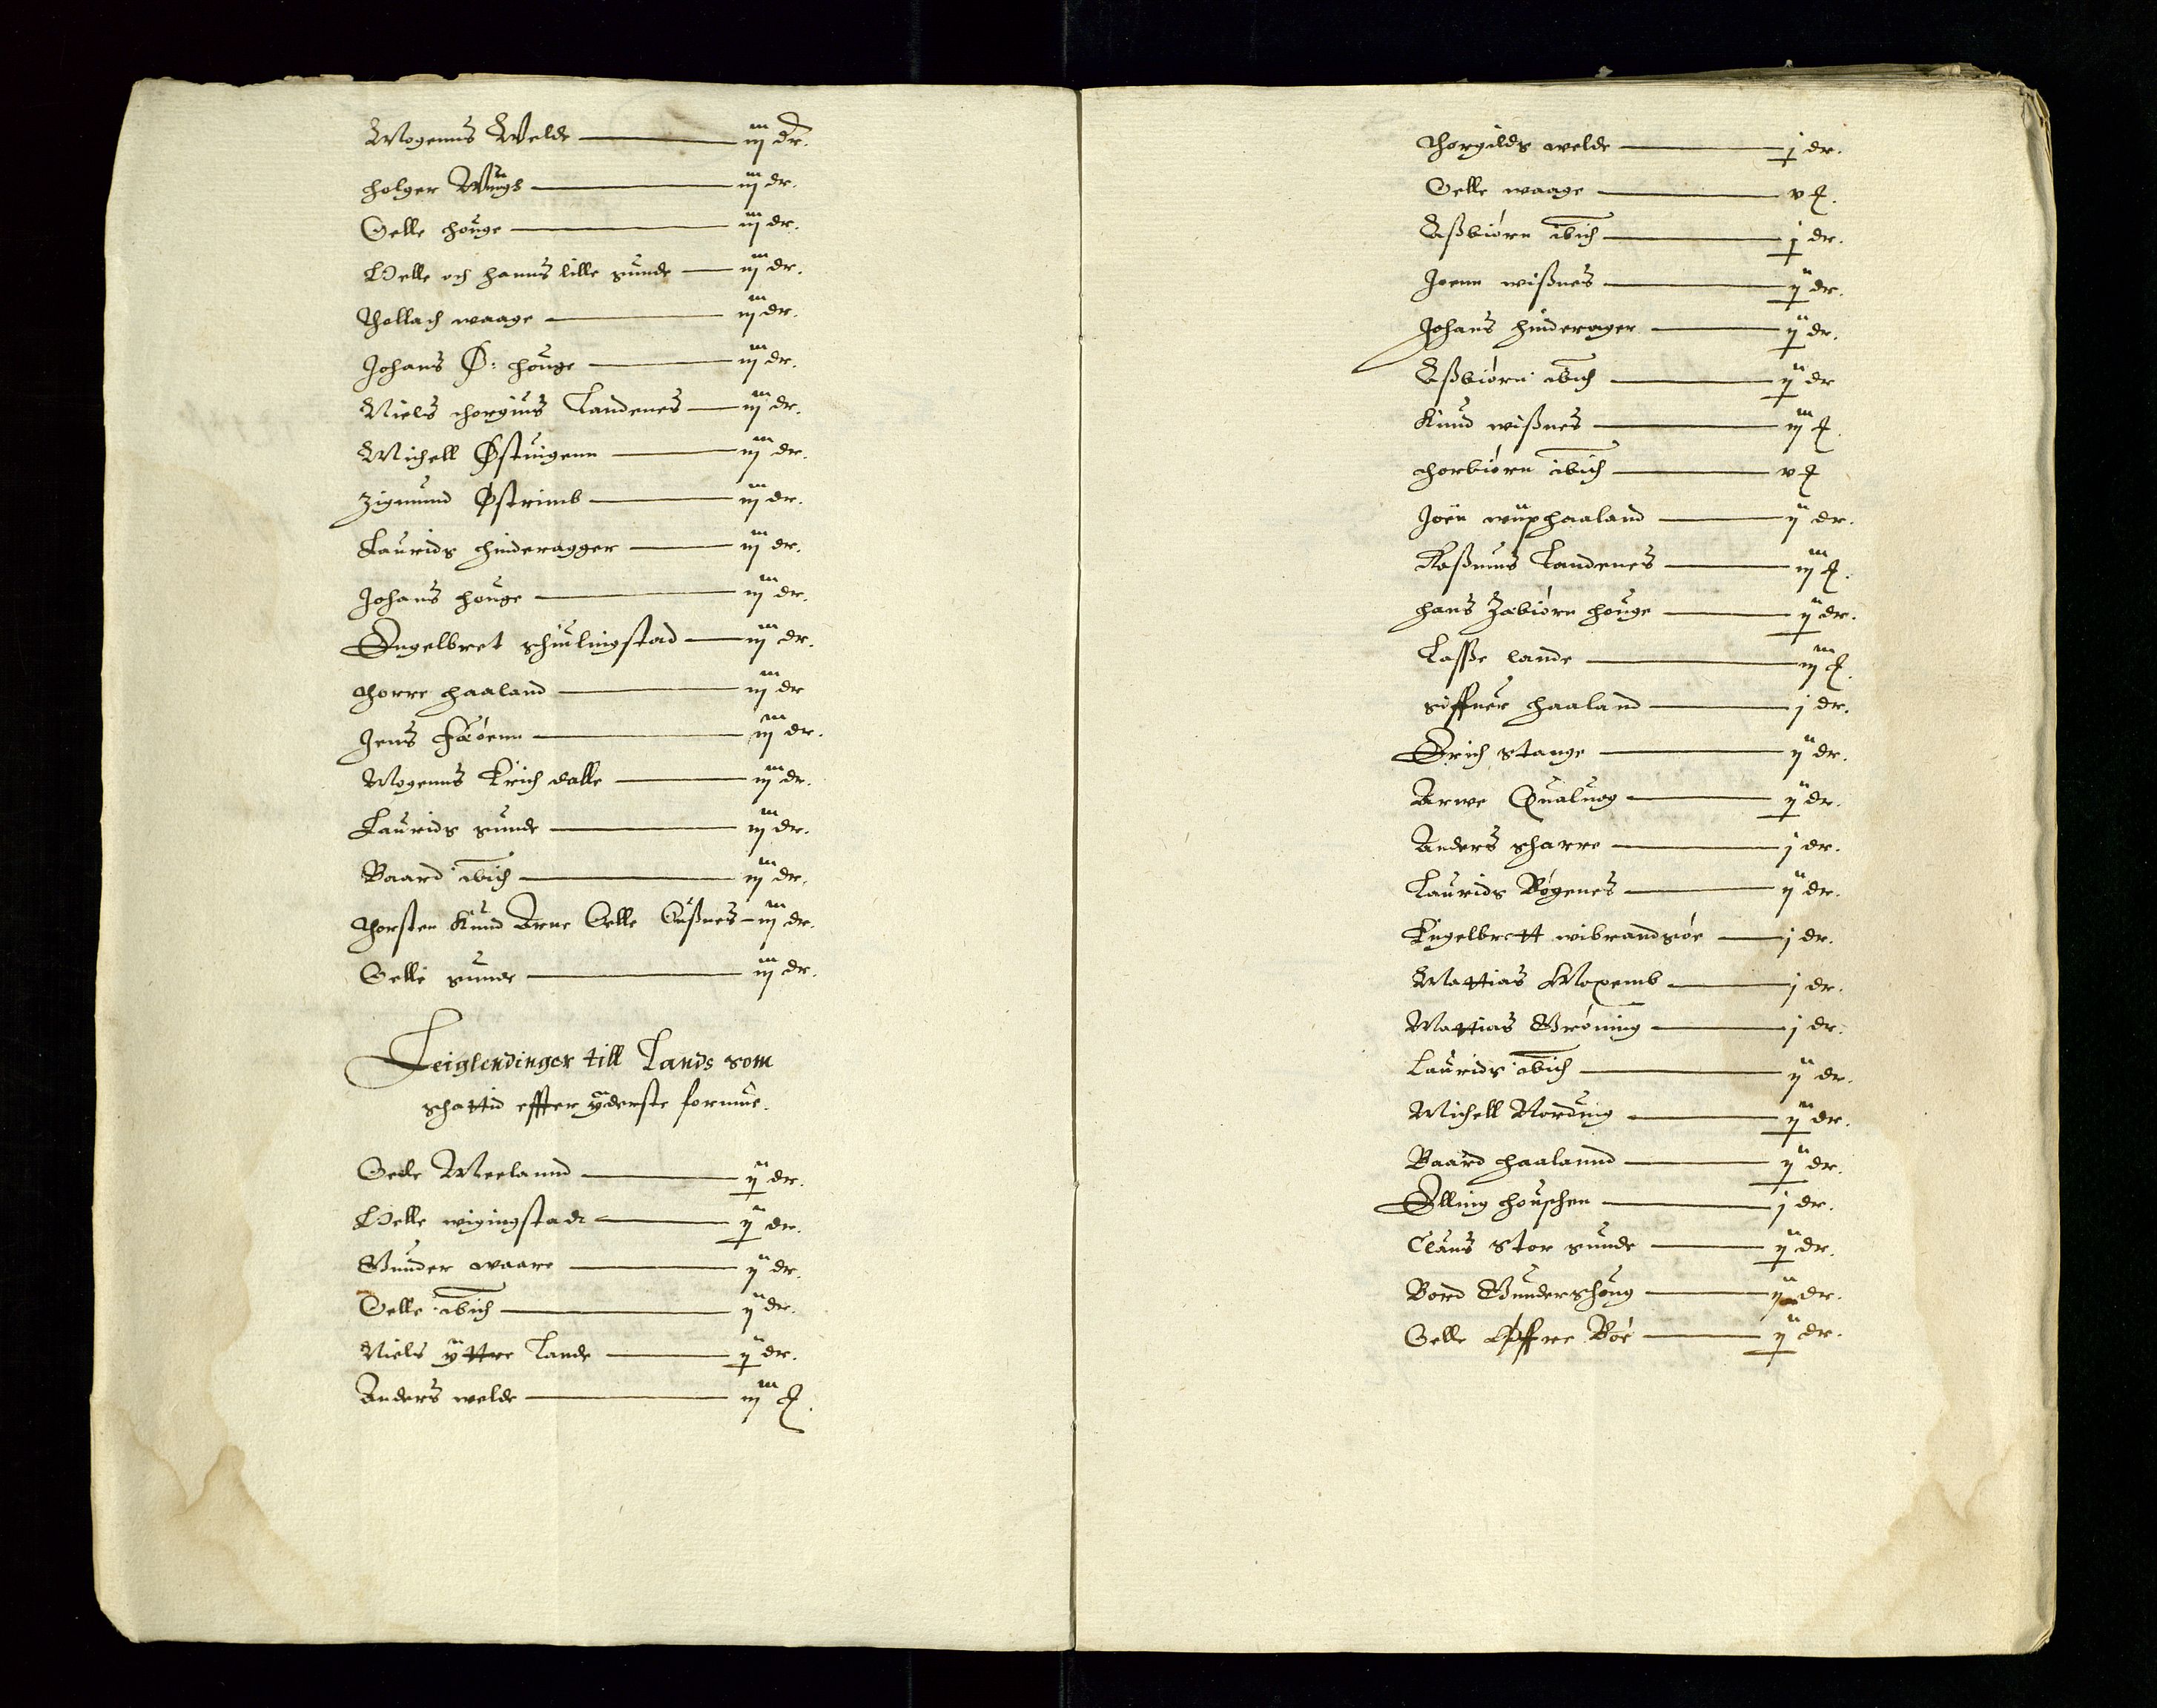 Mogenns Welde — iij dr.
Holger Wings — iij dr.
Oelle Houge — iij dr.
Oelle och hanns lille sunde — iij dr.
Thollach waage — iij dr.
Johans Ø: Houge — iij dr.
Niels Thorgius Landenes — iij dr.
Michell Østuigenn — iij dr.
Zigmund Østrimb — iij dr.
Laurids Hinderagger — iij dr.
Johans Houge — iij dr.
Engelbret schiulingstad — iij dr.
Thorre Haaland — iij dr
Jens Fæøenn — iij dr.
Mogenns Kirch dalle — iij dr.
Laurids sunde — iij dr.
Baard ibich — iij dr.
Thorsten Knud Arne Oelle Oußnes — iij dr.
Oelle sunde — iij dr.
Leiglendinger till Lands som
schattid effter ÿderste formue.
Oelle Meelannd — ij dr.
Oelle wigingstadt — ij dr.
Gunder waare — ij dr.
Oelle ibich — ij dr.
Niels ÿttre Lande — ij dr.
Anders welde — iij ₰.
Thorgilds welde — j dr.
Oelle waage — v ₰.
Aßbiørn ibich — j dr.
Joenn wißnes — ij dr.
Johans Hinderager — ij dr.
Aßbiørn ibich — ij dr
Knud wißnes — iij ₰.
Thorbiørn ibich — v ₰
Joen haaland — ij dr.
Raßmus Landenes — iij ₰.
Hans Zæbiørn Houge — ij dr.
Lasse lande — iij ₰.
siffuer Haaland — j dr.
Erich stange — ij dr.
Arwe Qualuog — ij dr.
Anders scharre — j dr.
Laurids Bøgenes — ij dr.
Engelbrett wibrandsøe — j dr.
Mattias Moxemb — j dr.
Mattias Grønning — j dr.
Laurids ibich — ij dr.
Michell Nording — ij dr.
Baard Haalannd — ij dr.
Elling Houschen — j dr.
Claus stor sunde — ij dr.
Bord Gunderschoug — ij dr.
Oelle Øffre Bøe — ij dr.